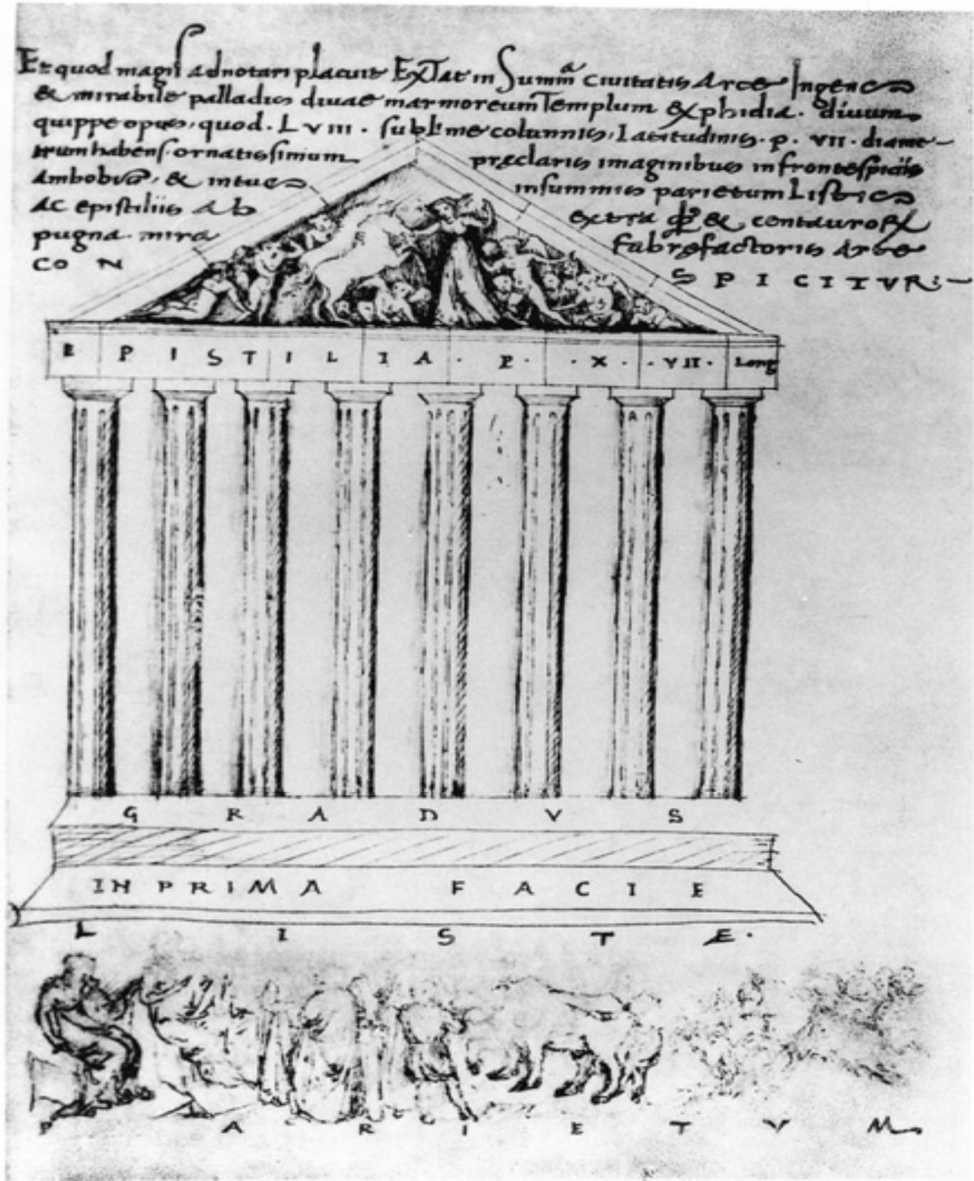 Et quod magis adnotari placuit ExTat in Summa ciuitatis Arce Ingens
& mirabile palladis diuae marmoreum Templum & phidia. diuum
quippe opus, quod. L VIII. sublime columnis, Latitudinis. p. VII. diame-
trum habens. ornatissimum praeclaris imaginibus in frontespiciis
Ambobus, & intus in summis parietum Listis
AC epistiliis Ab extra & centaurorum
pugna mira fabrefactoris Arte
CON SPICITVR:-
EPISTILIA. P. X. VII. Long
GRADVS
IN PRIMA FACIE
LISTÆ.
PARIETVM